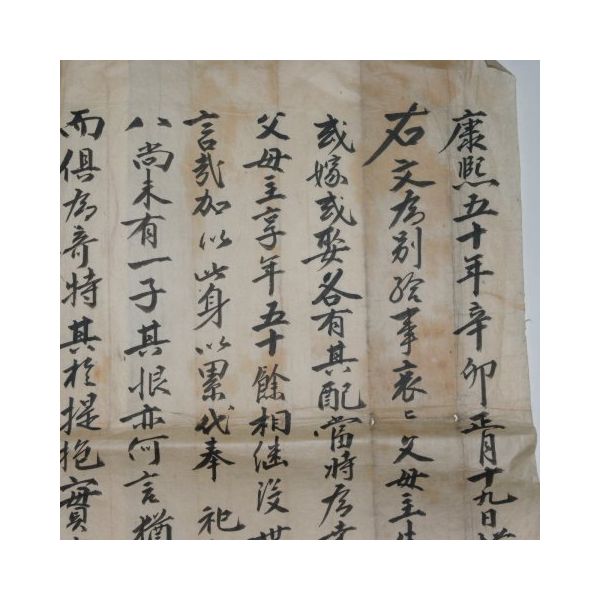 康熙五十年辛卯正月十九日
右文為別給事哀ミ父母主生
或嫁或娶各有其配當時為
父母主享年五十餘相継没世
言哉加以此身以累代奉祀
八尚未有一子其恨亦何言猶
而俱為奇特其於提抱實